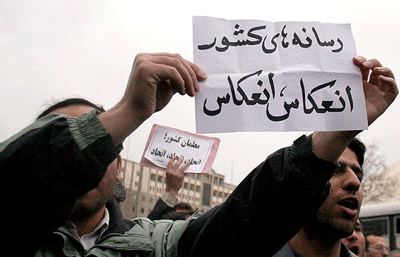 رسانه‌های کشور
انعکاس، انعکاس
معلمان کشور؛
اتحاد، اتحاد، اتحاد